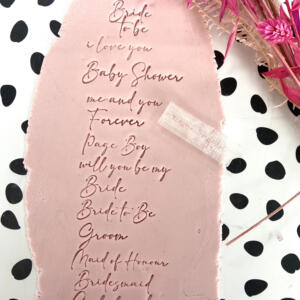 Bride
to be
i love you
Baby Shower
me and you
Forever
Page Boy
will you be my
Bride
Bride to Be
Groom
Maid of Honour
Bridesmaid